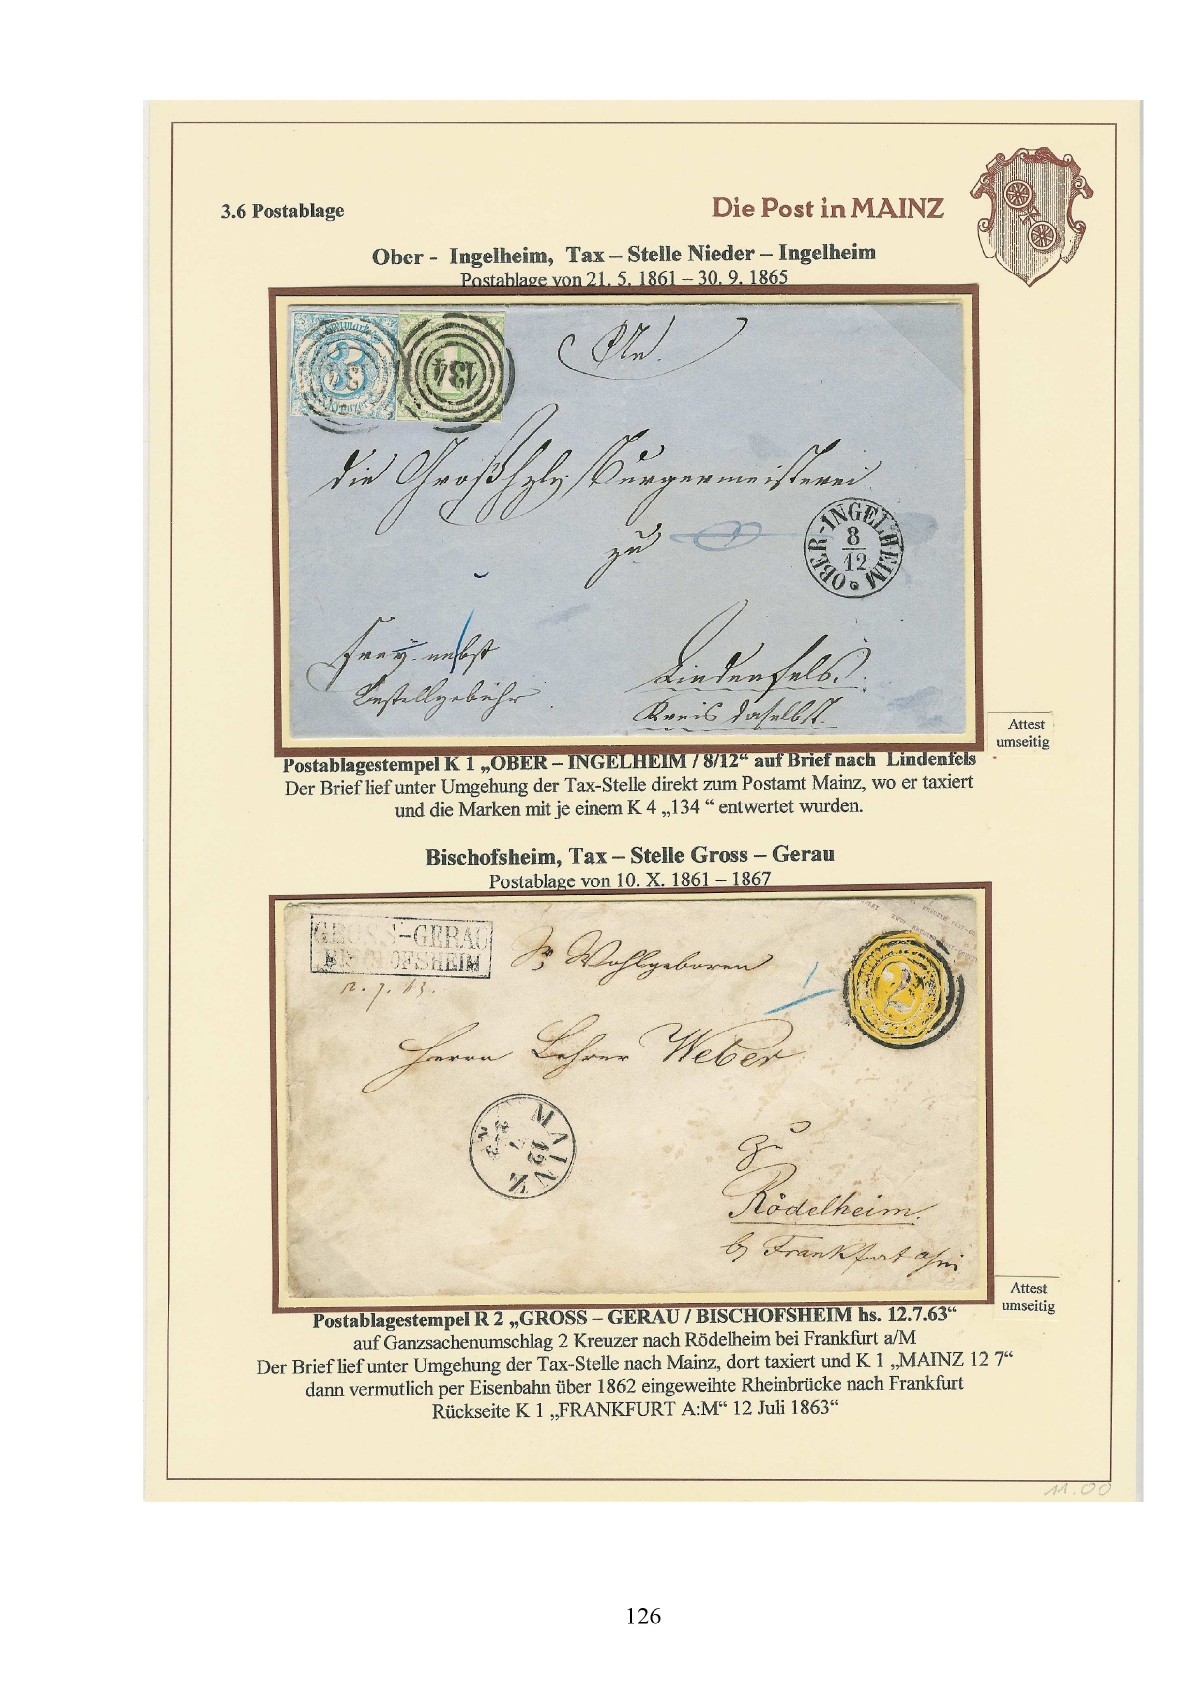 3.6 Postablage
Die Post in MAINZ
Ober - Ingelheim, Tax – Stelle Nieder – Ingelheim
Postablage von 21. 5. 1861 – 30. 9. 1865
134
An
die Großhzl. Bürgermeisterei
zu
OBER-INGELHEIM
8
12
Frey nebst
Bestellgebühr
Lindenfels.
Kreis daselbst.
Attest
umseitig
Postablagestempel K 1 „OBER – INGELHEIM / 8/12“ auf Brief nach Lindenfels
Der Brief lief unter Umgehung der Tax-Stelle direkt zum Postamt Mainz, wo er taxiert
und die Marken mit je einem K 4 „134 “ entwertet wurden.
Bischofsheim, Tax – Stelle Gross – Gerau
Postablage von 10. X. 1861 – 1867
GROSS-GERAU
BISCHOFSHEIM
12. 7. 63.
Sr. Wohlgeboren
2
Herrn Lehrer Weber
MAINZ
12
7
zu
Rödelheim.
b/ Frankfurt a/m
Attest
umseitig
Postablagestempel R 2 „GROSS – GERAU / BISCHOFSHEIM hs. 12.7.63“
auf Ganzsachenumschlag 2 Kreuzer nach Rödelheim bei Frankfurt a/M
Der Brief lief unter Umgehung der Tax-Stelle nach Mainz, dort taxiert und K 1 „MAINZ 12 7“
dann vermutlich per Eisenbahn über 1862 eingeweihte Rheinbrücke nach Frankfurt
Rückseite K 1 „FRANKFURT A:M“ 12 Juli 1863“
11.00
126